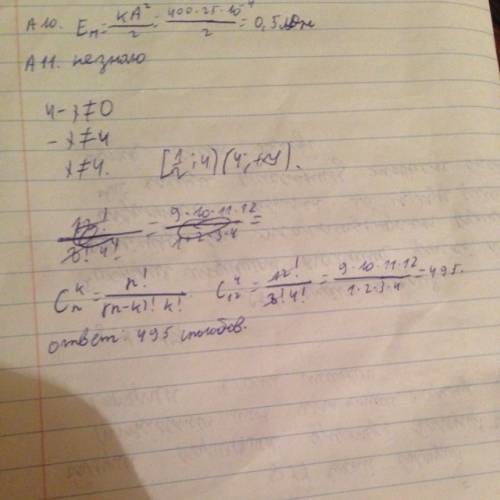 А10. Eп = kA²/2 = 400·25·10⁻⁴/2 = 0,5 Дж
А11. не знаю
4 - x ≠ 0
- x ≠ 4
x ≠ 4. [1/2; 4) (4; +∞).
= 9·10·11·12/1·2·3·4 =
C_n^k = n!/(n-k)! k! C_12^4 = 12!/8! 4! = 9·10·11·12/1·2·3·4 = 495.
ответ: 495 способов.